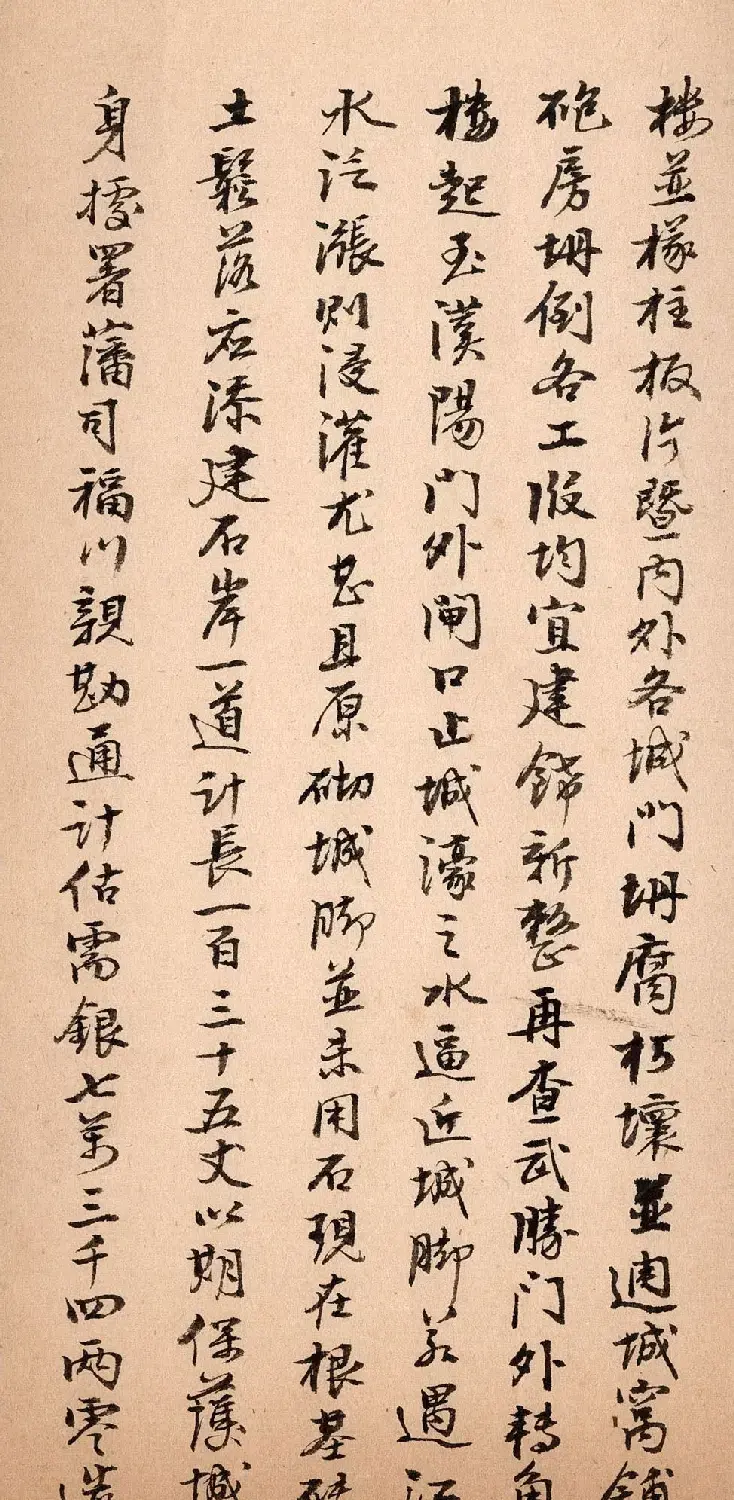 楼並椽柱板片暨内外各城門坍腐朽壞並週城窩舖
砲房坍倒各工段均宜建飾新整再查武勝门外轉角
楼起至漢陽门外閘口止城濠之水逼近城脚若遇江
水泛漲则浸灌尤甚且原砌城脚並未用石現在根基
土鬆落应添建石岸一道计長一百三十五丈以期保護城
身據署藩司福川親勘通计估需銀七萬三千四两零